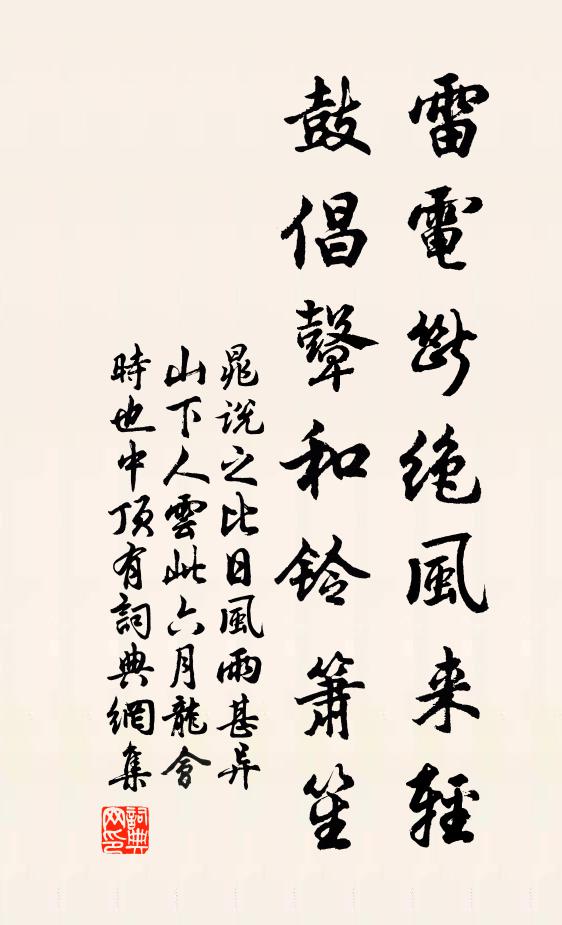 雷電斷絶風来輕
鼓倡鼙和鈴簫笙
晁說之比日風雨甚异
山下人雲此六月龍會
時也中頂有詞典網集
詞典網印